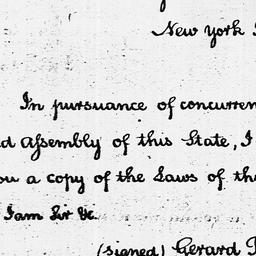 New York
In pursuance of concurren
d Assembly of this State, I
ou a copy of the Laws of th
I am Sir &c.
(signed) Gerard